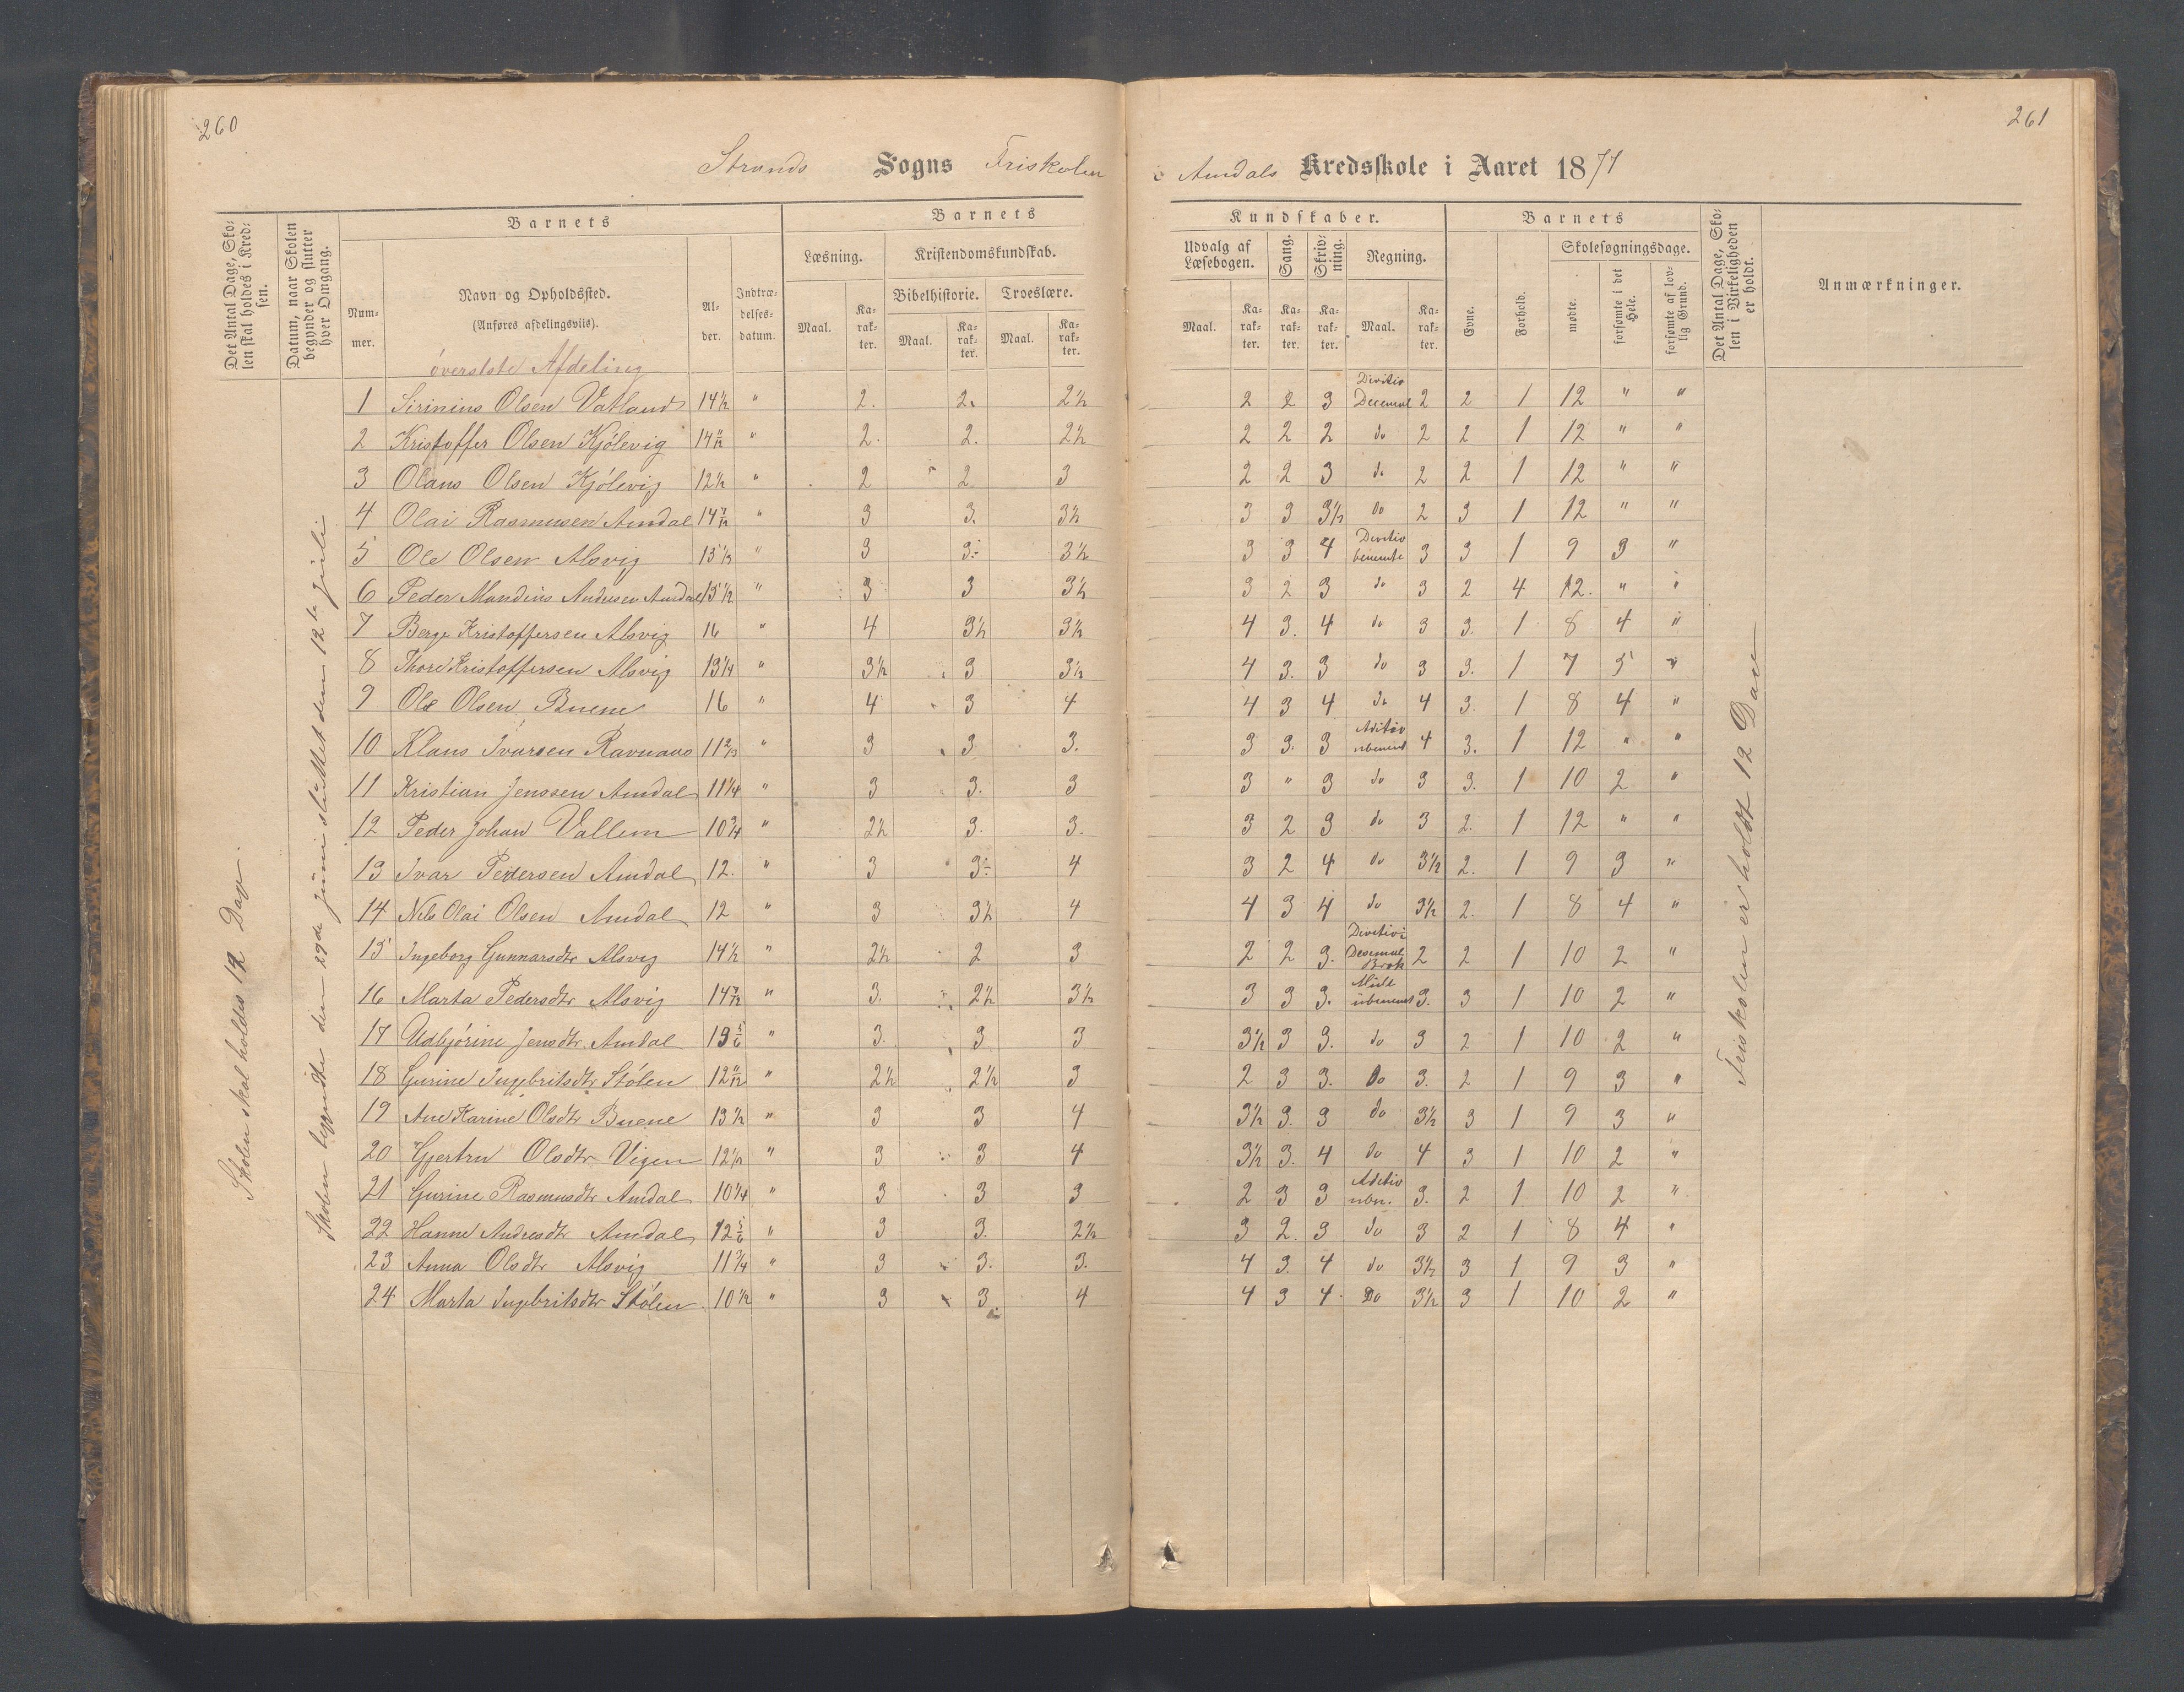 260
261
Strands Sogns Friskolen i Amdals Kredsskole i Aaret 1871
Det Antal Dage, Skolen skal holdes i Kredsen.
Datum, naar Skolen begynder og slutter hver Omgang.
Barnets
Nummer.
Navn og Opholdssted.
(Anføres afdelingsviis).
Alder.
Indtrædelsesdatum.
Barnets
Læsning.
Kristendomskundskab.
Maal.
Karakter.
Bibelhistorie.
Troeslære.
Maal.
Karakter.
Maal.
Karakter.
Kundskaber.
Udvalg af Læsebogen.
Sang.
Skrivning.
Regning.
Maal.
Karakter.
Karakter.
Karakter.
Maal.
Karakter.
Barnets
Evne.
Forhold.
Skolesøgningsdage.
mødte.
forsømte i det Hele.
forsømte af lovlig Grund.
Det Antal Dage, Skolen i Virkeligheden er holdt.
Anmærkninger.
Skolen skal holdes 12 Dage.
Skolen begyndte den 29de juni sluttet den 12te juli
øverstste Afdeling
1 Sirinius Olsen Vatland 14½ " 2. 2. 2½ 2 2 3 Divitio Decemal 2 2 1 12 " "
2 Kristoffer Olsen Kjölevig 14 " 2. 2. 2½ 2 2 2 do 2 2 1 12 " "
3 Olaus Olsen Kjölevig 12½ " 2 2 3 2 2 3 do 2 2 1 12 " "
4 Olai Rasmusen Amdal 14 " 3 3. 3½ 3 3 3½ do 2 3 1 12 " "
5 Ole Olsen Alsvig " 3 3. 3½ 3 3 4 Divitio benemte 3 3 1 9 3 "
6 Peder Mandius Andersen Amdal 15½ " 3 3 3½ 3 2 3 do 3 2 4 12. " "
7 Berge Kristoffersen Alsvig 16 " 4 3½ 3½ 4 3. 4 do 3 3. 1 8 4 "
8 Thore Kristoffersen Alsvig 13¼ " 3½ 3 3½ 4 3. 3 do 3 3. 1 7 5 "
9 Ole Olsen Buene 16 " 4 3 4 4 3 4 do 4 3. 1 8 4 "
10 Klaus Ivarsen Ravnaas " 3 3 3. 3 3. 3 Aditio ubenemt 4 3. 1 12 " "
11 Kristian Jenssen Amdal 11¼ " 3 3. 3 3 " 3 do 3 3. 1 10 2 "
12 Peder Johan Vallem 10¾ " 2½ 3. 3. 3 2 3 do 3 2. 1 12 " "
13 Ivar Pedersen Amdal 12. " 3 3. 4 3 2 4 do 3½ 2. 1 9 3 "
14 Nils Olai Olsen Amdal 12 " 3 3½ 4 4 3 4 do 3½ 2. 1 8 4 "
15 Ingeborg Gunnarsdtr Alsvig 14½ " 2½ 2 3 2 2 3. Divitivi Desemal Brøk 2 2 1 10 2 "
16 Marta Pedersdtr Alsvig 14 " 3. 2½ 3½ 3 3 3. Mult ubenemt 3. 3 1 10 2 "
17 Udbjörine Jensdtr Amdal 13 5/6 " 3. 3 3 3½ 3 3. do 3 2 1 10 2 "
18 Gurine Ingebritsdtr Stölen 12 11/12 " 2½ 2½ 3 2 3 3. Do 3. 2 1 9 3 "
19 Ane Karine Olsdtr Buene 13½ " 3 3 4 3½ 3. 3 do 3½ 3 1 9 3 "
20 Gjertru Olsdtr Vigen 12½ " 3 3 4 3½ 3. 4 do 4 3 1 10 2 "
21 Gurine Rasmusdtr Amdal 10¼ " 3 3 3 2 3 3 Aditio ubn. 3. 2 1 10 2 "
22 Hanne Andresdtr Amdal 12 5/6 " 3 3. 2½ 3 2. 3 do 3 2 1 8 4 "
23 Anna Olsdtr Alsvig 11¾ " 3 3. 3. 4 3. 4 do 3½ 3 1 9 3 "
24 Marta Ingebritsdtr Stölen 10½ " 3 3 4 4 3 4. Do 3½ 3 1 10 2 "
Friskolen er holdt 12 Dage